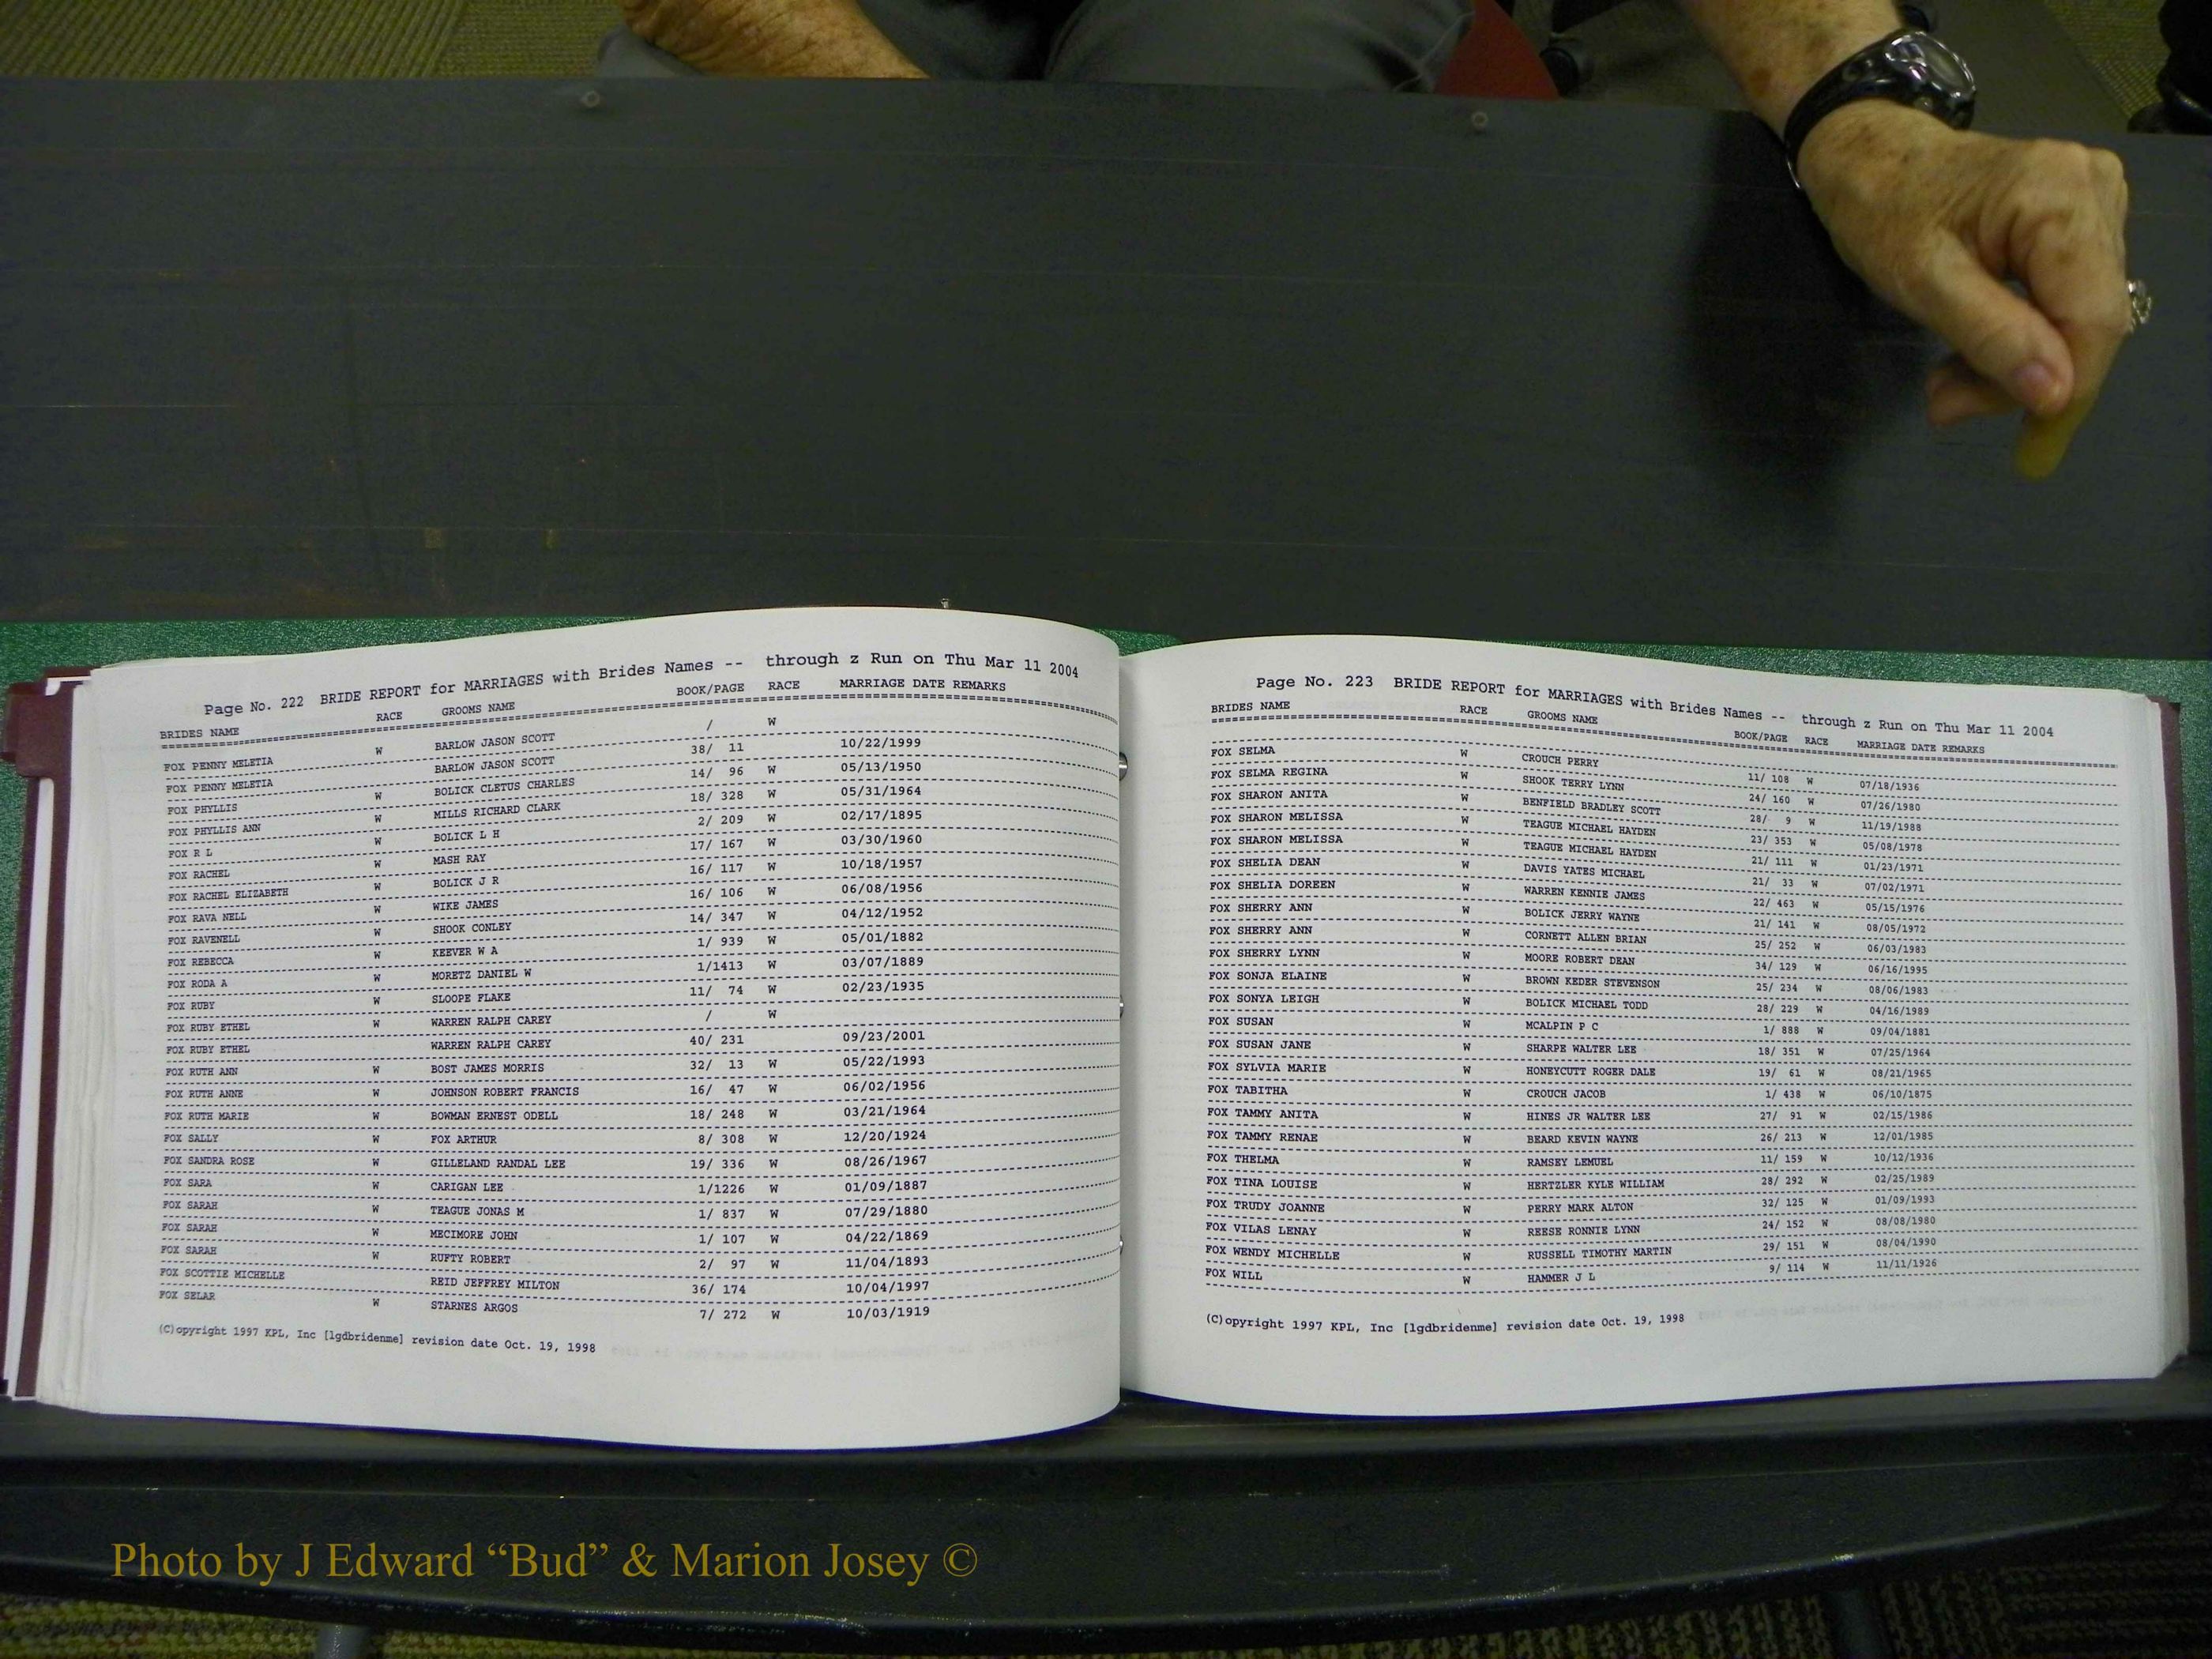 Page No. 222 BRIDE REPORT for MARRIAGES with Brides Names -- through z Run on Thu Mar 11 2004
BRIDES NAME RACE GROOMS NAME BOOK/PAGE RACE MARRIAGE DATE REMARKS
FOX PENNY MELETIA W BARLOW JASON SCOTT / W
FOX PENNY MELETIA BARLOW JASON SCOTT 38/ 11 10/22/1999
FOX PHYLLIS W BOLICK CLETUS CHARLES 14/ 96 W 05/13/1950
FOX PHYLLIS ANN W MILLS RICHARD CLARK 18/ 328 W 05/31/1964
FOX R L W BOLICK L H 2/ 209 W 02/17/1895
FOX RACHEL W MASH RAY 17/ 167 W 03/30/1960
FOX RACHEL ELIZABETH W BOLICK J R 16/ 117 W 10/18/1957
FOX RAVA NELL W WIKE JAMES 16/ 106 W 06/08/1956
FOX RAVENELL W SHOOK CONLEY 14/ 347 W 04/12/1952
FOX REBECCA W KEEVER W A 1/ 939 W 05/01/1882
FOX RODA A W MORETZ DANIEL W 1/1413 W 03/07/1889
FOX RUBY W SLOOPE FLAKE 11/ 74 W 02/23/1935
FOX RUBY ETHEL W WARREN RALPH CAREY / W
FOX RUBY ETHEL WARREN RALPH CAREY 40/ 231 09/23/2001
FOX RUTH ANN W BOST JAMES MORRIS 32/ 13 W 05/22/1993
FOX RUTH ANNE W JOHNSON ROBERT FRANCIS 16/ 47 W 06/02/1956
FOX RUTH MARIE W BOWMAN ERNEST ODELL 18/ 248 W 03/21/1964
FOX SALLY W FOX ARTHUR 8/ 308 W 12/20/1924
FOX SANDRA ROSE W GILLELAND RANDAL LEE 19/ 336 W 08/26/1967
FOX SARA W CARIGAN LEE 1/1226 W 01/09/1887
FOX SARAH W TEAGUE JONAS M 1/ 837 W 07/29/1880
FOX SARAH W MECIMORE JOHN 1/ 107 W 04/22/1869
FOX SARAH W RUFTY ROBERT 2/ 97 W 11/04/1893
FOX SCOTTIE MICHELLE REID JEFFREY MILTON 36/ 174 10/04/1997
FOX SELAR W STARNES ARGOS 7/ 272 W 10/03/1919
(C)opyright 1997 KPL, Inc [lgdbridenme] revision date Oct. 19, 1998
Page No. 223 BRIDE REPORT for MARRIAGES with Brides Names -- through z Run on Thu Mar 11 2004
BRIDES NAME RACE GROOMS NAME BOOK/PAGE RACE MARRIAGE DATE REMARKS
FOX SELMA W CROUCH PERRY 11/ 108 W 07/18/1936
FOX SELMA REGINA W SHOOK TERRY LYNN 24/ 160 W 07/26/1980
FOX SHARON ANITA W BENFIELD BRADLEY SCOTT 28/ 9 W 11/19/1988
FOX SHARON MELISSA W TEAGUE MICHAEL HAYDEN 23/ 353 W 05/08/1978
FOX SHARON MELISSA W TEAGUE MICHAEL HAYDEN 21/ 111 W 01/23/1971
FOX SHELIA DEAN W DAVIS YATES MICHAEL 21/ 33 W 07/02/1971
FOX SHELIA DOREEN W WARREN KENNIE JAMES 22/ 463 W 05/15/1976
FOX SHERRY ANN W BOLICK JERRY WAYNE 21/ 141 W 08/05/1972
FOX SHERRY ANN W CORNETT ALLEN BRIAN 25/ 252 W 06/03/1983
FOX SHERRY LYNN W MOORE ROBERT DEAN 34/ 129 W 06/16/1995
FOX SONJA ELAINE W BROWN KEDER STEVENSON 25/ 234 W 08/06/1983
FOX SONYA LEIGH W BOLICK MICHAEL TODD 28/ 229 W 04/16/1989
FOX SUSAN W MCALPIN P C 1/ 888 W 09/04/1881
FOX SUSAN JANE W SHARPE WALTER LEE 18/ 351 W 07/25/1964
FOX SYLVIA MARIE W HONEYCUTT ROGER DALE 19/ 61 W 08/21/1965
FOX TABITHA W CROUCH JACOB 1/ 438 W 06/10/1875
FOX TAMMY ANITA W HINES JR WALTER LEE 27/ 91 W 02/15/1986
FOX TAMMY RENAE W BEARD KEVIN WAYNE 26/ 213 W 12/01/1985
FOX THELMA W RAMSEY LEMUEL 11/ 159 W 10/12/1936
FOX TINA LOUISE W HERTZLER KYLE WILLIAM 28/ 292 W 02/25/1989
FOX TRUDY JOANNE W PERRY MARK ALTON 32/ 125 W 01/09/1993
FOX VILAS LENAY W REESE RONNIE LYNN 24/ 152 W 08/08/1980
FOX WENDY MICHELLE W RUSSELL TIMOTHY MARTIN 29/ 151 W 08/04/1990
FOX WILL W HAMMER J L 9/ 114 W 11/11/1926
(C)opyright 1997 KPL, Inc [lgdbridenme] revision date Oct. 19, 1998
Photo by J Edward “Bud” & Marion Josey ©